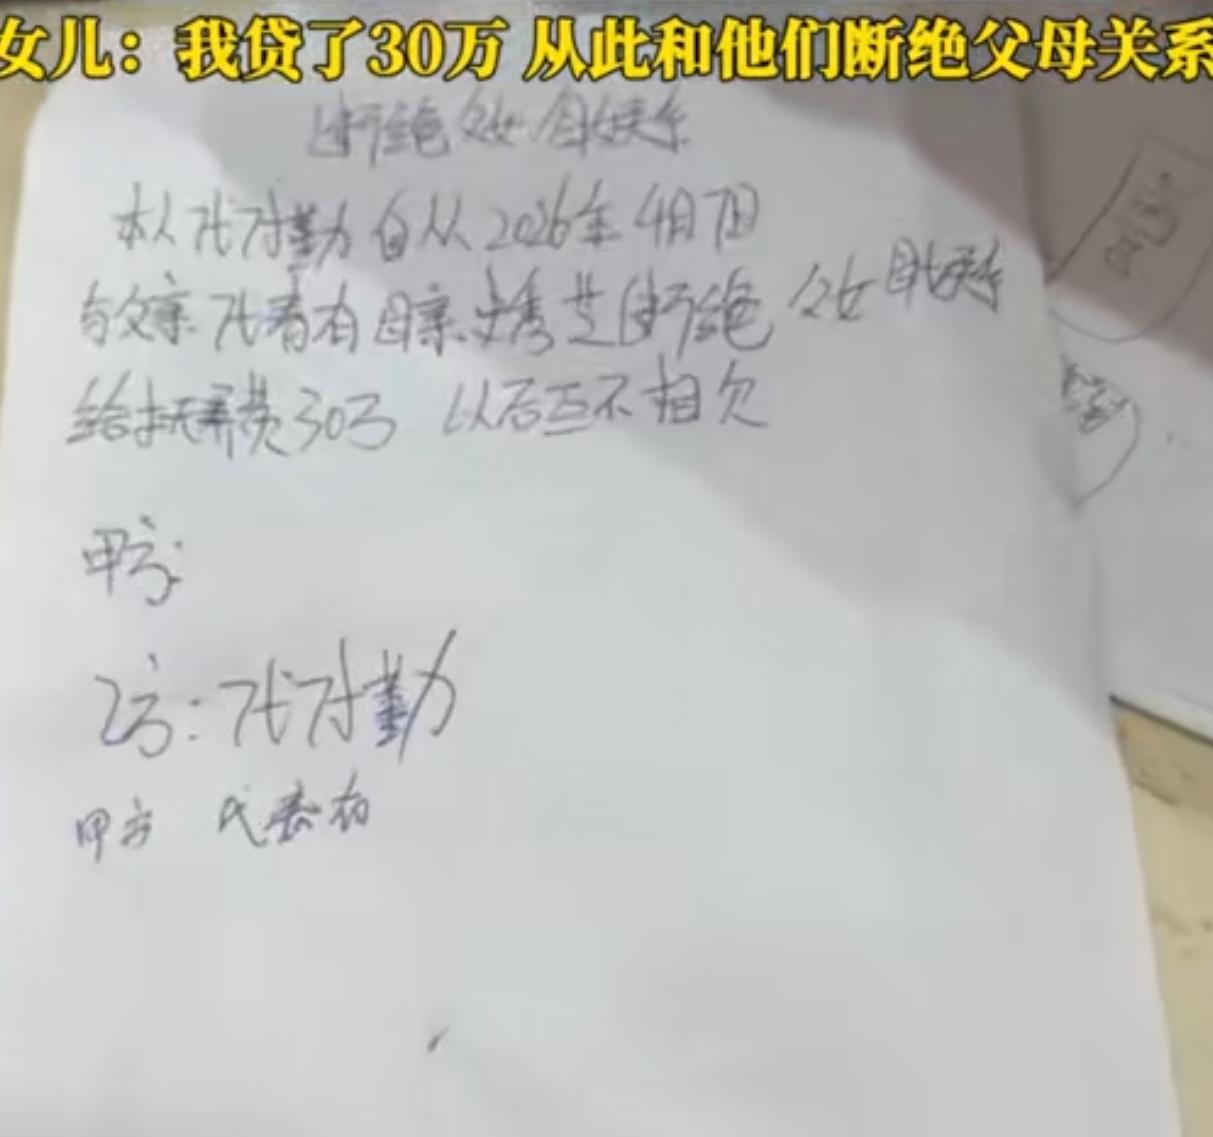 女儿：我贷了30万 从此和他们断绝父母关系
断绝父女 母女关系
本人代对勤自从2026年4月7日
与父亲代春有母亲史秀芝断绝 父女 母女关系
给抚养费30万 以后互不相欠
甲方：
乙方：代对勤
甲方 代春有